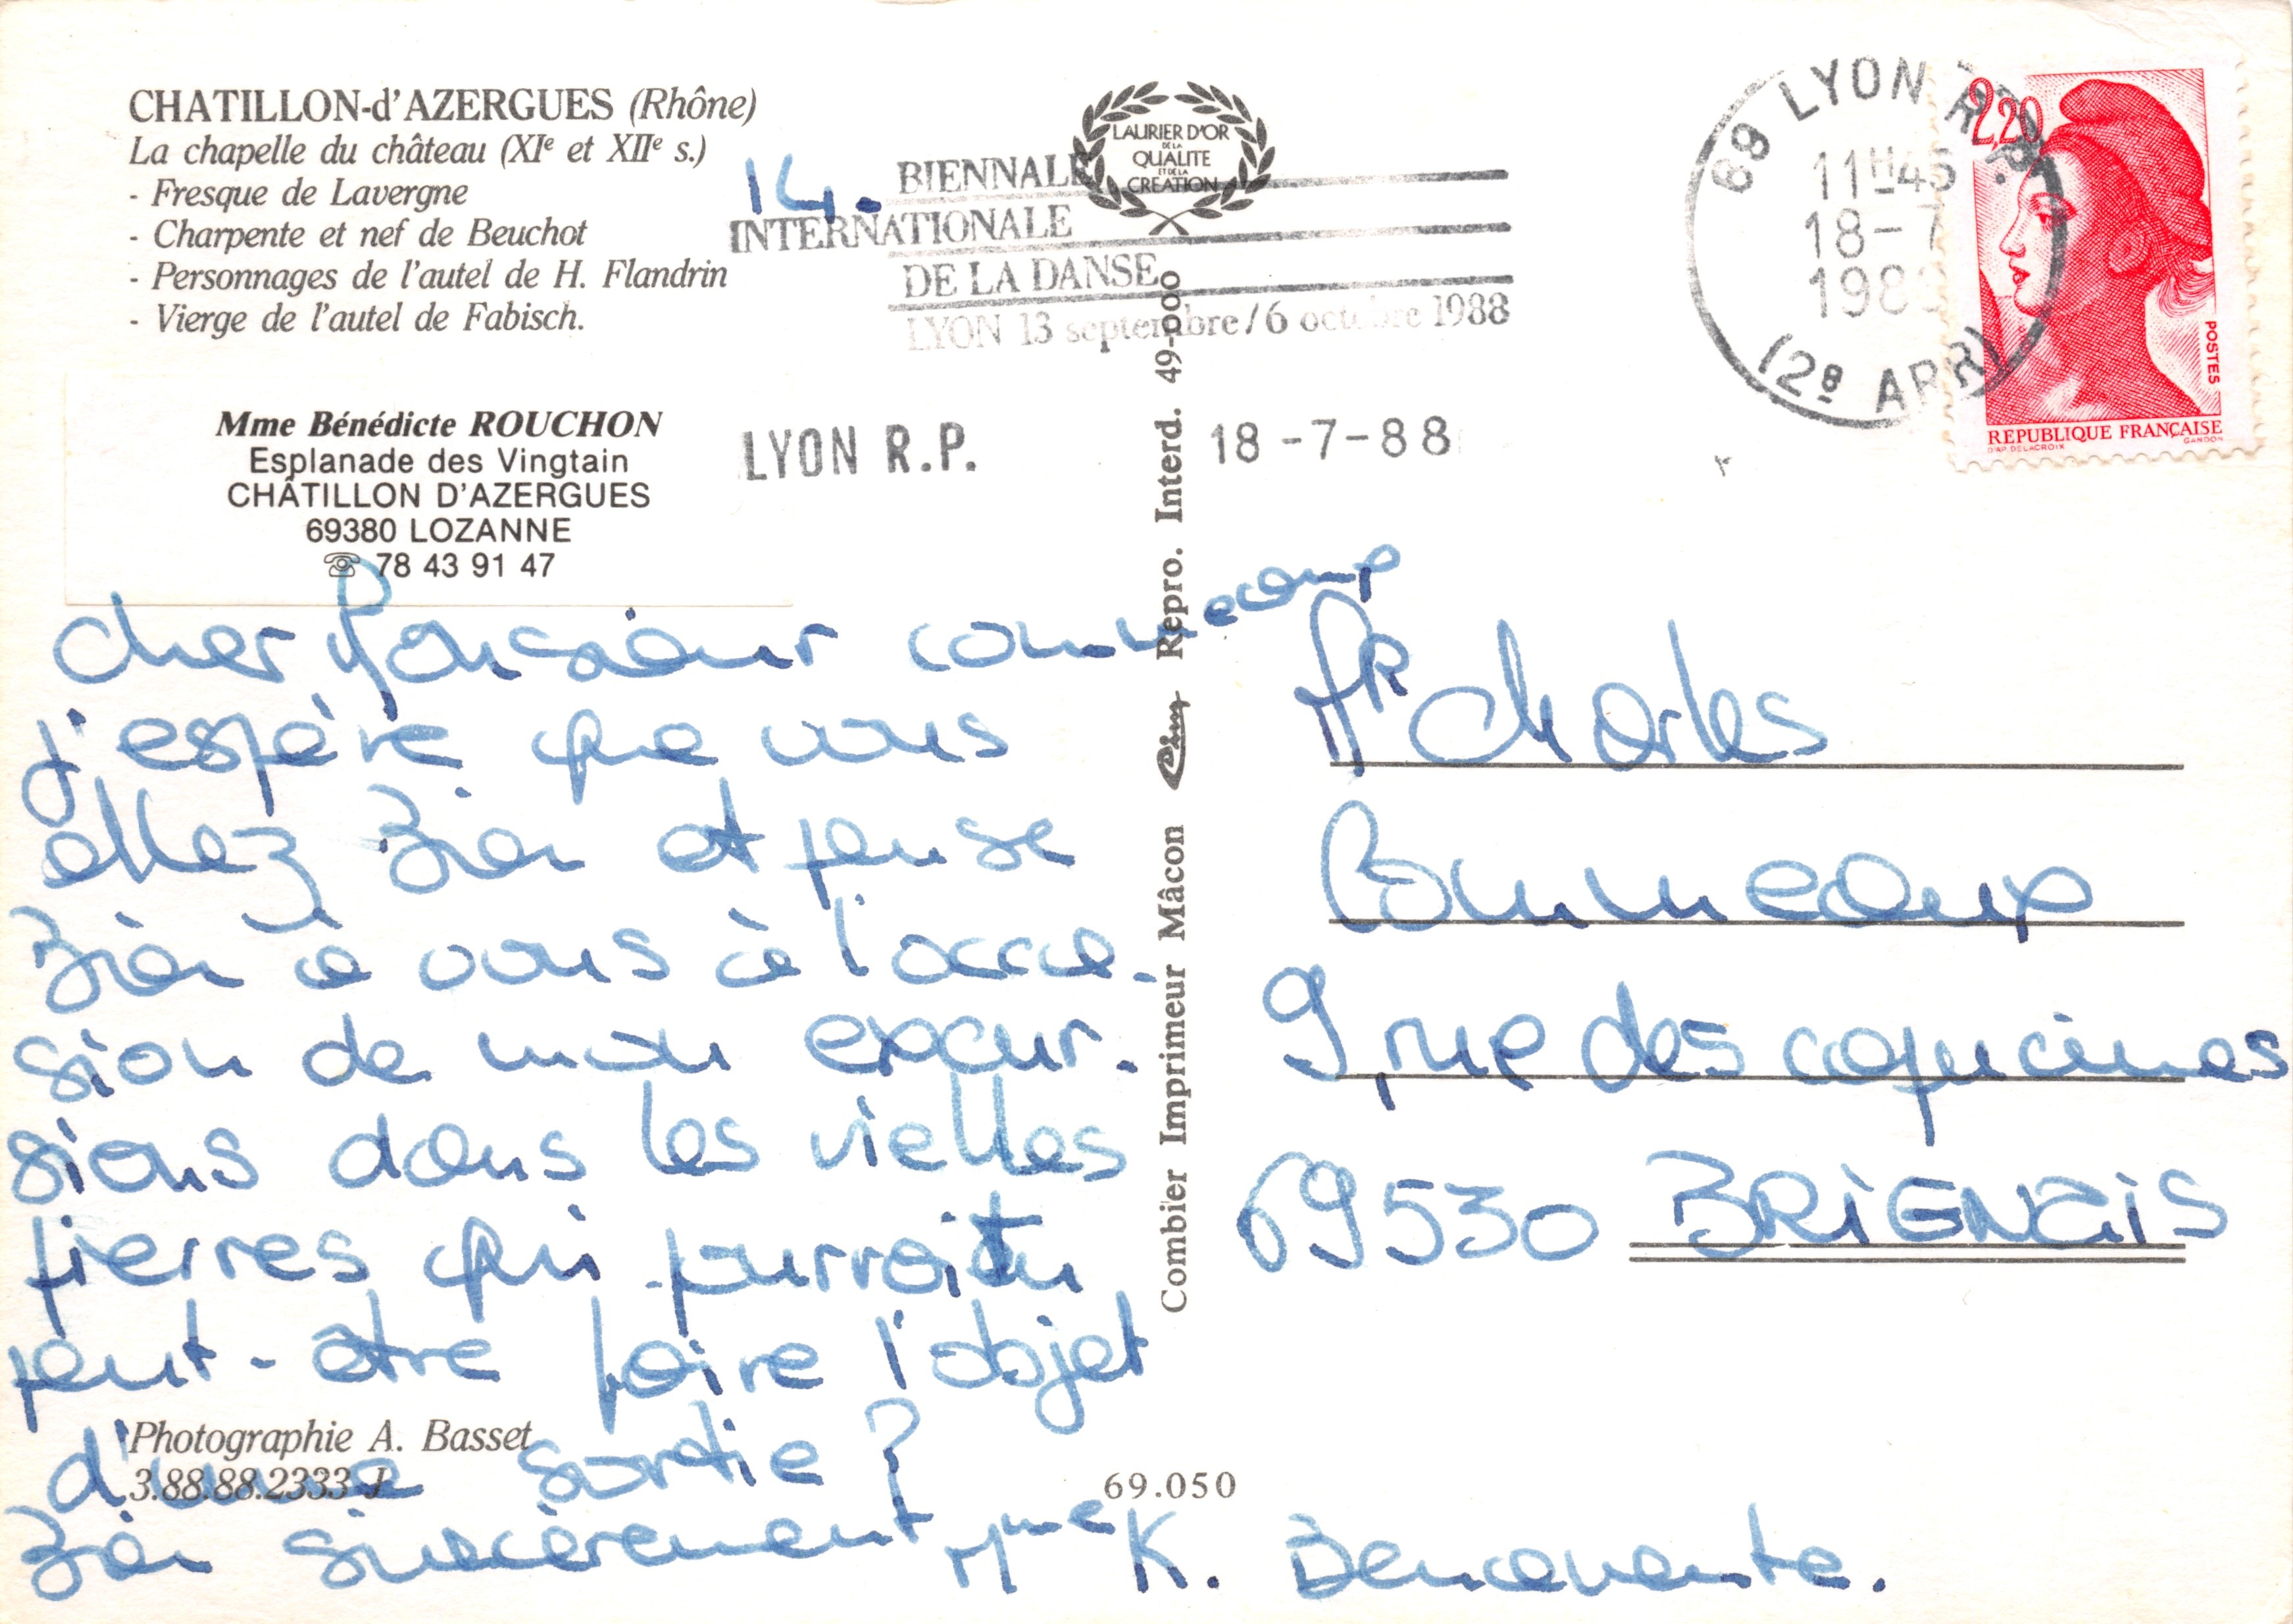 CHATILLON-d'AZERGUES (Rhône)
La chapelle du château (XIe et XIIe s.)
- Fresque de Lavergne
- Charpente et nef de Beuchot
- Personnages de l'autel de H. Flandrin
- Vierge de l'autel de Fabisch.
14.
BIENNALE
INTERNATIONALE
DE LA DANSE
LYON 13 septembre/6 octobre 1988
LYON R.P. 18-7-88
LAURIER D'OR
DE LA
QUALITE
ET DE LA
CREATION
69 LYON R.P.
11H45
18-7
198
(2e ARR)
2,20
POSTES
REPUBLIQUE FRANÇAISE
D'AP. DELACROIX GANDON
Mme Bénédicte ROUCHON
Esplanade des Vingtain
CHÂTILLON D'AZERGUES
69380 LOZANNE
☎ 78 43 91 47
Cher Monsieur Commecamp
j'espére que vous
allez bien et pense
bien à vous à l'occa-
sion de mon excur-
sions dans les vielles
pierres qui purrait
peut-être faire l'objet
d'une sortie ?
Bien sincèrement Mme K. Benavente.
Photographie A. Basset
3.88.88.2333 J
69.050
Combier Imprimeur Mâcon Cim Repro. Interd. 49-000
MR Charles
9, rue des capucines
69530 BRIGNAIS